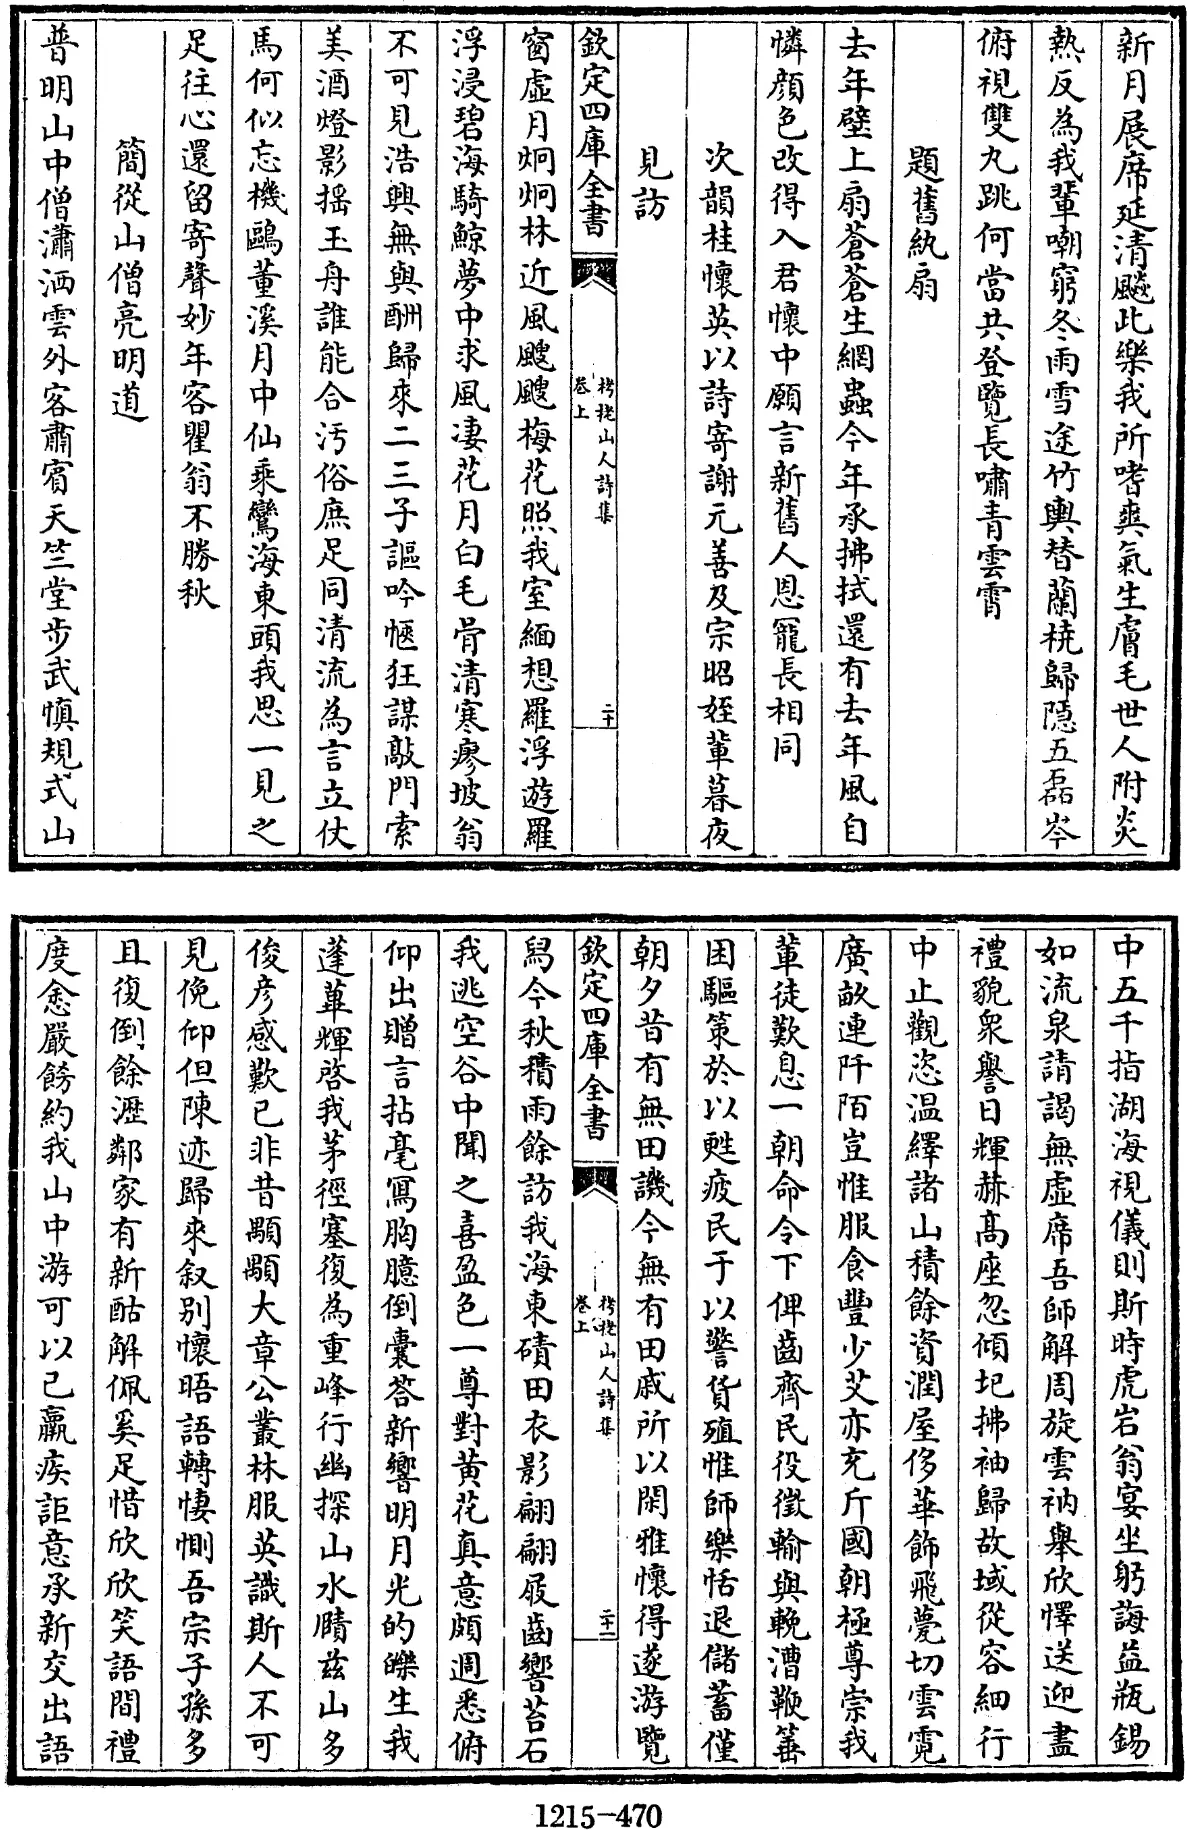 新月展席延清飈此樂我所嗜爽氣生膚毛世人附炎
熱反為我輩嘲窮冬雨雪途竹輿替蘭橈歸隱五磊岑
俯視雙丸跳何當共登覽長嘯青雲霄
題舊紈扇
去年壁上扇蒼蒼生網蟲今年承拂拭還有去年風自
憐顏色改得入君懷中願言新舊人恩寵長相同
次韻桂懷英以詩寄謝元善及宗昭姪輩暮夜
見訪
欽定四庫全書
栲栳山人詩集
卷上
二十
窗虛月炯炯林近風颼颼梅花照我室緬想羅浮遊羅
浮浸碧海騎鯨夢中求風凄花月白毛骨清寒廖坡翁
不可見浩興無與酬歸來二三子謳吟愜狂謀敲門索
美酒燈影搖玉舟誰能合汚俗庶足同清流為言立仗
馬何似忘機鷗董溪月中仙乘鸞海東頭我思一見之
足往心還留寄聲妙年客瞿翁不勝秋
簡從山僧亮明道
普明山中僧瀟洒雲外客肅賓天竺堂步武慎規式山
中五千指湖海視儀則斯時虎岩翁宴坐躬誨益瓶錫
如流泉請謁無虛席吾師解周旋雲衲舉欣懌送迎盡
禮貌衆譽日輝赫高座忽傾圮拂袖歸故域從容細行
中止觀恣温繹諸山積餘資潤屋侈華飾飛甍切雲霓
廣畝連阡陌豈惟服食豐少艾亦充斤國朝極尊崇我
輩徒歎息一朝命令下俾齒齊民役徵輸與輓漕鞭箠
困驅策於以甦疲民于以警貨殖惟師樂恬退儲蓄僅
朝夕昔有無田譏今無有田戚所以閑雅懷得遂游覽
欽定四庫全書
栲栳山人詩集
卷上
二十一
舄今秋積雨餘訪我海東磧田衣影翩翩屐齒響苔石
我逃空谷中聞之喜盈色一尊對黄花真意頗週悉俯
仰出贈言拈毫寫胸臆倒囊荅新響明月光的皪生我
蓬蓽輝啓我茅徑塞復為重峰行幽探山水賾兹山多
俊彦感歎已非昔顒顒大章公叢林服英識斯人不可
見俛仰但陳迹歸來叙别懷晤語轉悽惻吾宗子孫多
且復倒餘瀝鄰家有新酤解佩奚足惜欣欣笑語間禮
度愈嚴飭約我山中游可以已羸疾詎意承新交出語
1215-470